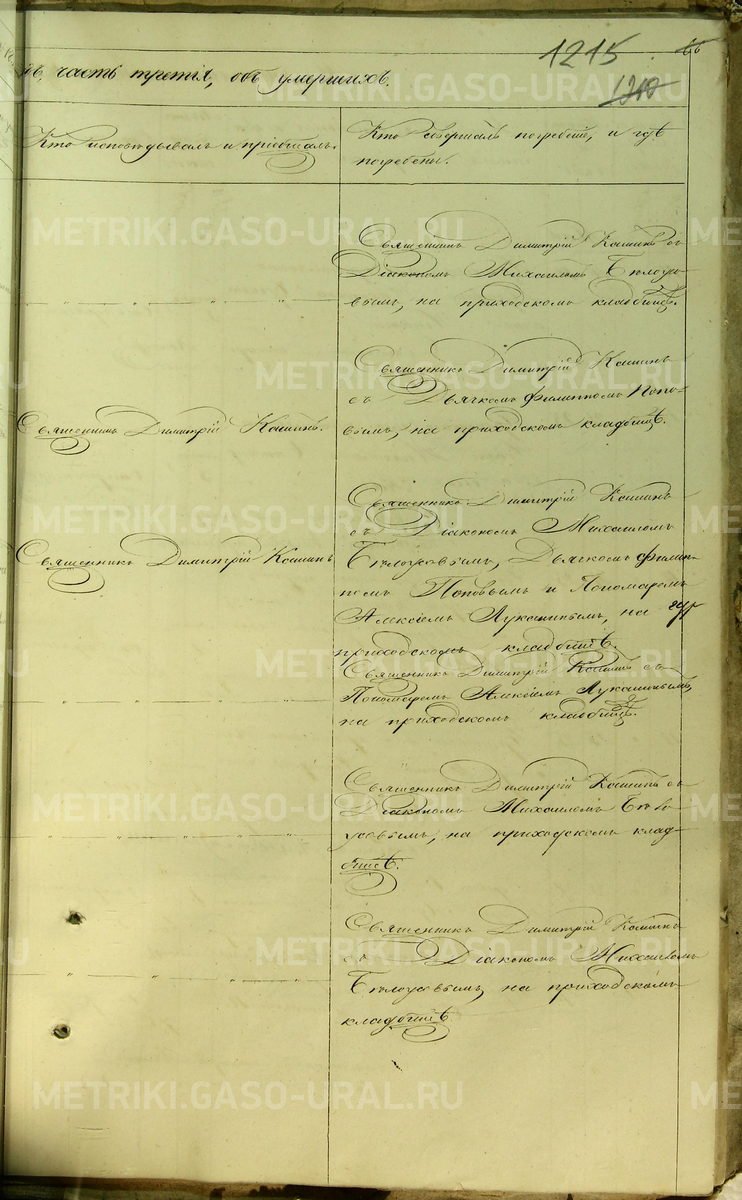 1215
66
1210
часть третія, объ умершихъ.
Кто исповѣдывалъ и пріобщалъ.
Кто совершалъ погребеніе, и гдѣ
погребены.
Священникъ Димитрій Кашинъ съ
Діакономъ Михаиломъ Бѣлоусо-
вымъ, на приходскомъ кладбищѣ.
Священникъ Димитрій Кашинъ
съ Дьячкомъ Филиппомъ Попо-
вымъ, на приходскомъ кладбищѣ.
Священникъ Димитрій Кашинъ.
Священникъ Димитрій Кашинъ
съ Діакономъ Михаиломъ
Бѣлоусовымъ, Дьячкомъ Филип-
помъ Поповымъ и Пономаремъ
Алексіемъ Луканинымъ, на
приходскомъ кладбищѣ.
Священникъ Димитрій Кашинъ
Священникъ Димитрій Кашинъ съ
Пономаремъ Алексіемъ Луканинымъ,
на приходскомъ кладбищѣ.
Священникъ Димитрій Кашинъ съ
Діакономъ Михаиломъ Бѣло-
усовымъ, на приходскомъ клад-
бищѣ.
Священникъ Димитрій Кашинъ
съ Діакономъ Михаиломъ
Бѣлоусовымъ, на приходскомъ
кладбищѣ.
METRIKI.GASO-URAL.RU